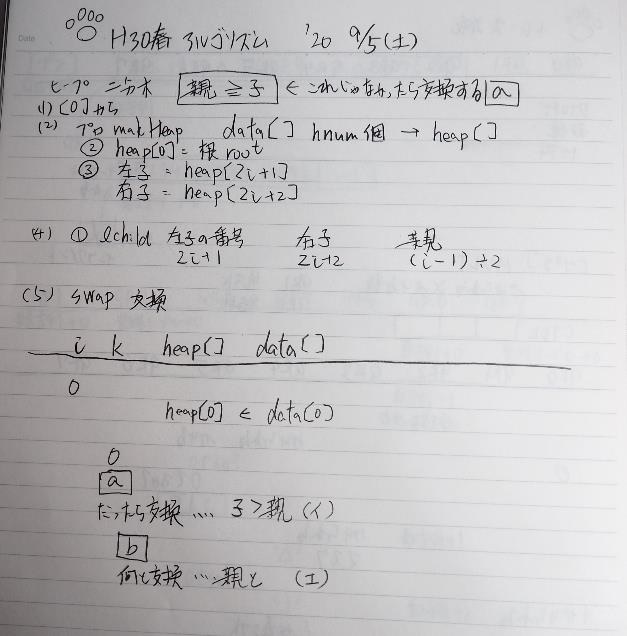 H30春 アルゴリズム '20 9/5(土)
ヒープ 二分木 親 ≧ 子 ← これじゃなかったら交換する a
(1) [0]から
(2) プロ makHeap data[] hnum個 → heap[]
② heap[0] = 根 root
③ 左子 = heap[2i+1]
右子 = heap[2i+2]
(4) ① lchild 左子の番号 右子 親
2i+1 2i+2 (i-1)÷2
(5) swap 交換
i k heap[] data[]
0
heap[0] ← data[0]
0
a
だったら交換 .... 子>親 (イ)
b
何と交換 ... 親と (エ)